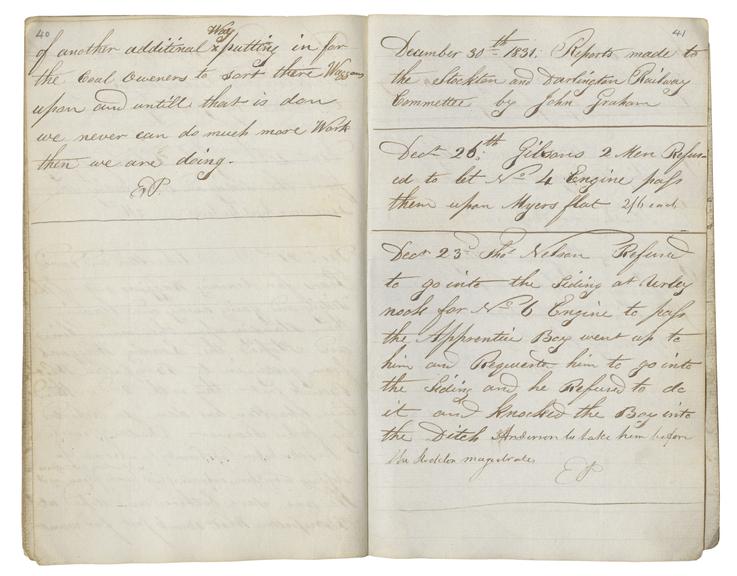 40
of another additinal Way & putting in for
the Coal Oweners to Sort there Waggons
upon and untill that is don
we never can do much more Work
then we are doing.
41
December 30th 1831. Reports made to
the Stockton and Darlington Railway
Committee by John Graham
Decr 26th Gibsons 2 Men Refus-
ed to let No 4 Engine pass
them upon Myers flat 2/6 each
Decr 23d Thos Nelson Refused
to go into the Siding at Urley
nook for No 6 Engine to pass
the Apprentice Boy went up to
him and Requested him to go into
the Siding and he Refused to do
it and knocked the Boy into
the Ditch Anderson to take him before
the Stockton magistrates